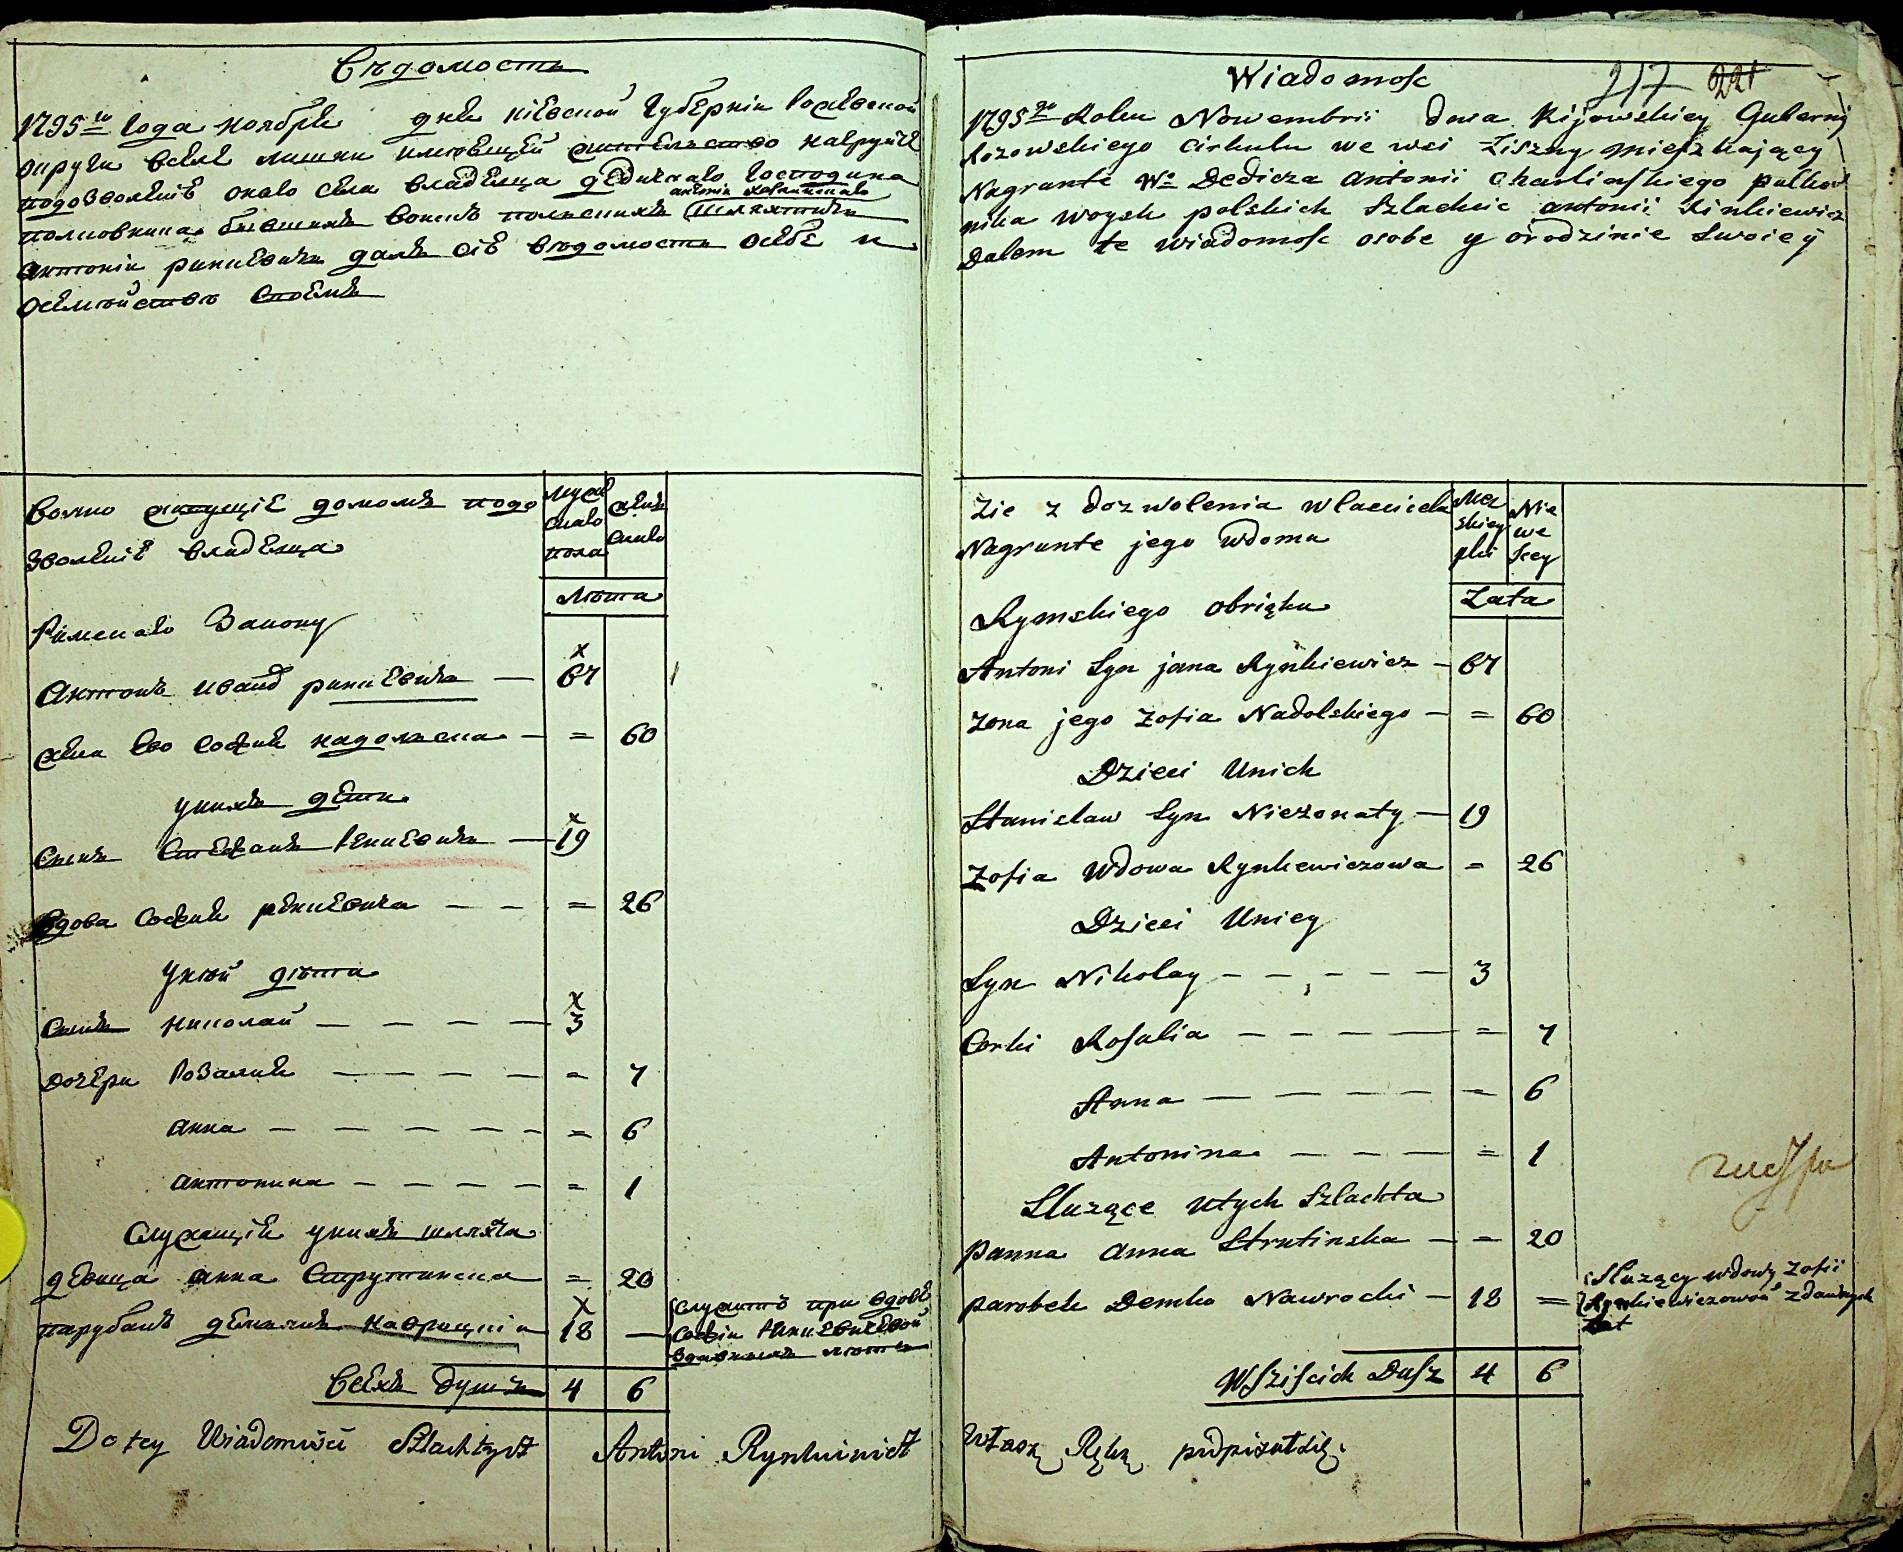 Вѣдомость
1795го года ноября дня кіевской губерніи
округи имеющей жителство
подозволеніе около села владельца дедичнаго господина
полковника бывшихъ войскъ полскихъ шляхтичъ
антоніи ринкевичъ далъ сіе вѣдомость осебе и
осемѣйство своемъ
волно живущіе домомъ подо
зволеніе владелца
муж
скаго
пола
жен
скаго
Лѣта
Римскаго Закону
Антонъ иванд ринкевичъ — 67
жена ево софия надолска — = 60
унихъ дети
сынъ Стефанъ — 19
вдова софия — — = 26
Уней дѣти
сынъ николай — — — — 3
дочери розалия — — — — = 7
анна — — — — — = 6
антонина — — — — = 1
служащіе унихъ шляхта
девица анна Струтинска = 20
парубакъ навроцкій 18 —
служитъ при вдове
софіи
здавныхъ летъ
Всехъ душъ 4 6
Do tey Wiadomości Szlachtycz Antoni Rynkiewicz
217 221
Wiadomosc
1795go Roku Nowembrii dnia Kijowskiey Guberny
cirkulu we wsi mieszkający
Nagruncie Wo Dedicza Antonii Charlinskiego pulkow
nika woysk polskich Szlachcic antonii Rinkiewicz
Dalem te wiadomosc osobe y orodzinie swoiey
Zie z dozwolenia wlasciciela
Nagruncie jego wdomu
Mez
skiey
plci
Nie
we
sciey
Lata
Rymskiego obriątku
Antoni Syn jana Rynkiewicz — 67
Zona jego Zofia Nadolskiego — = 60
Dzieci Unich
Stanislaw Syn Niezonaty — 19
Zofia Wdowa Rynkiewiczowa = 26
Dzieci Uniey
Syn Nikolay — — — — — 3
Corki Rosalia — — — — = 7
Anna — — — — — = 6
Antonina — — — = 1
Sluzące Utych Szlachta
Panna Anna Strutinska — = 20
parobek Demko Nawrocki — 18 =
Sluzący wdowy Zofii
Rynkiewiczowoi zdawnych
Lat
Wsziscich Dusz 4 6
Własną Ręką podpisałsię